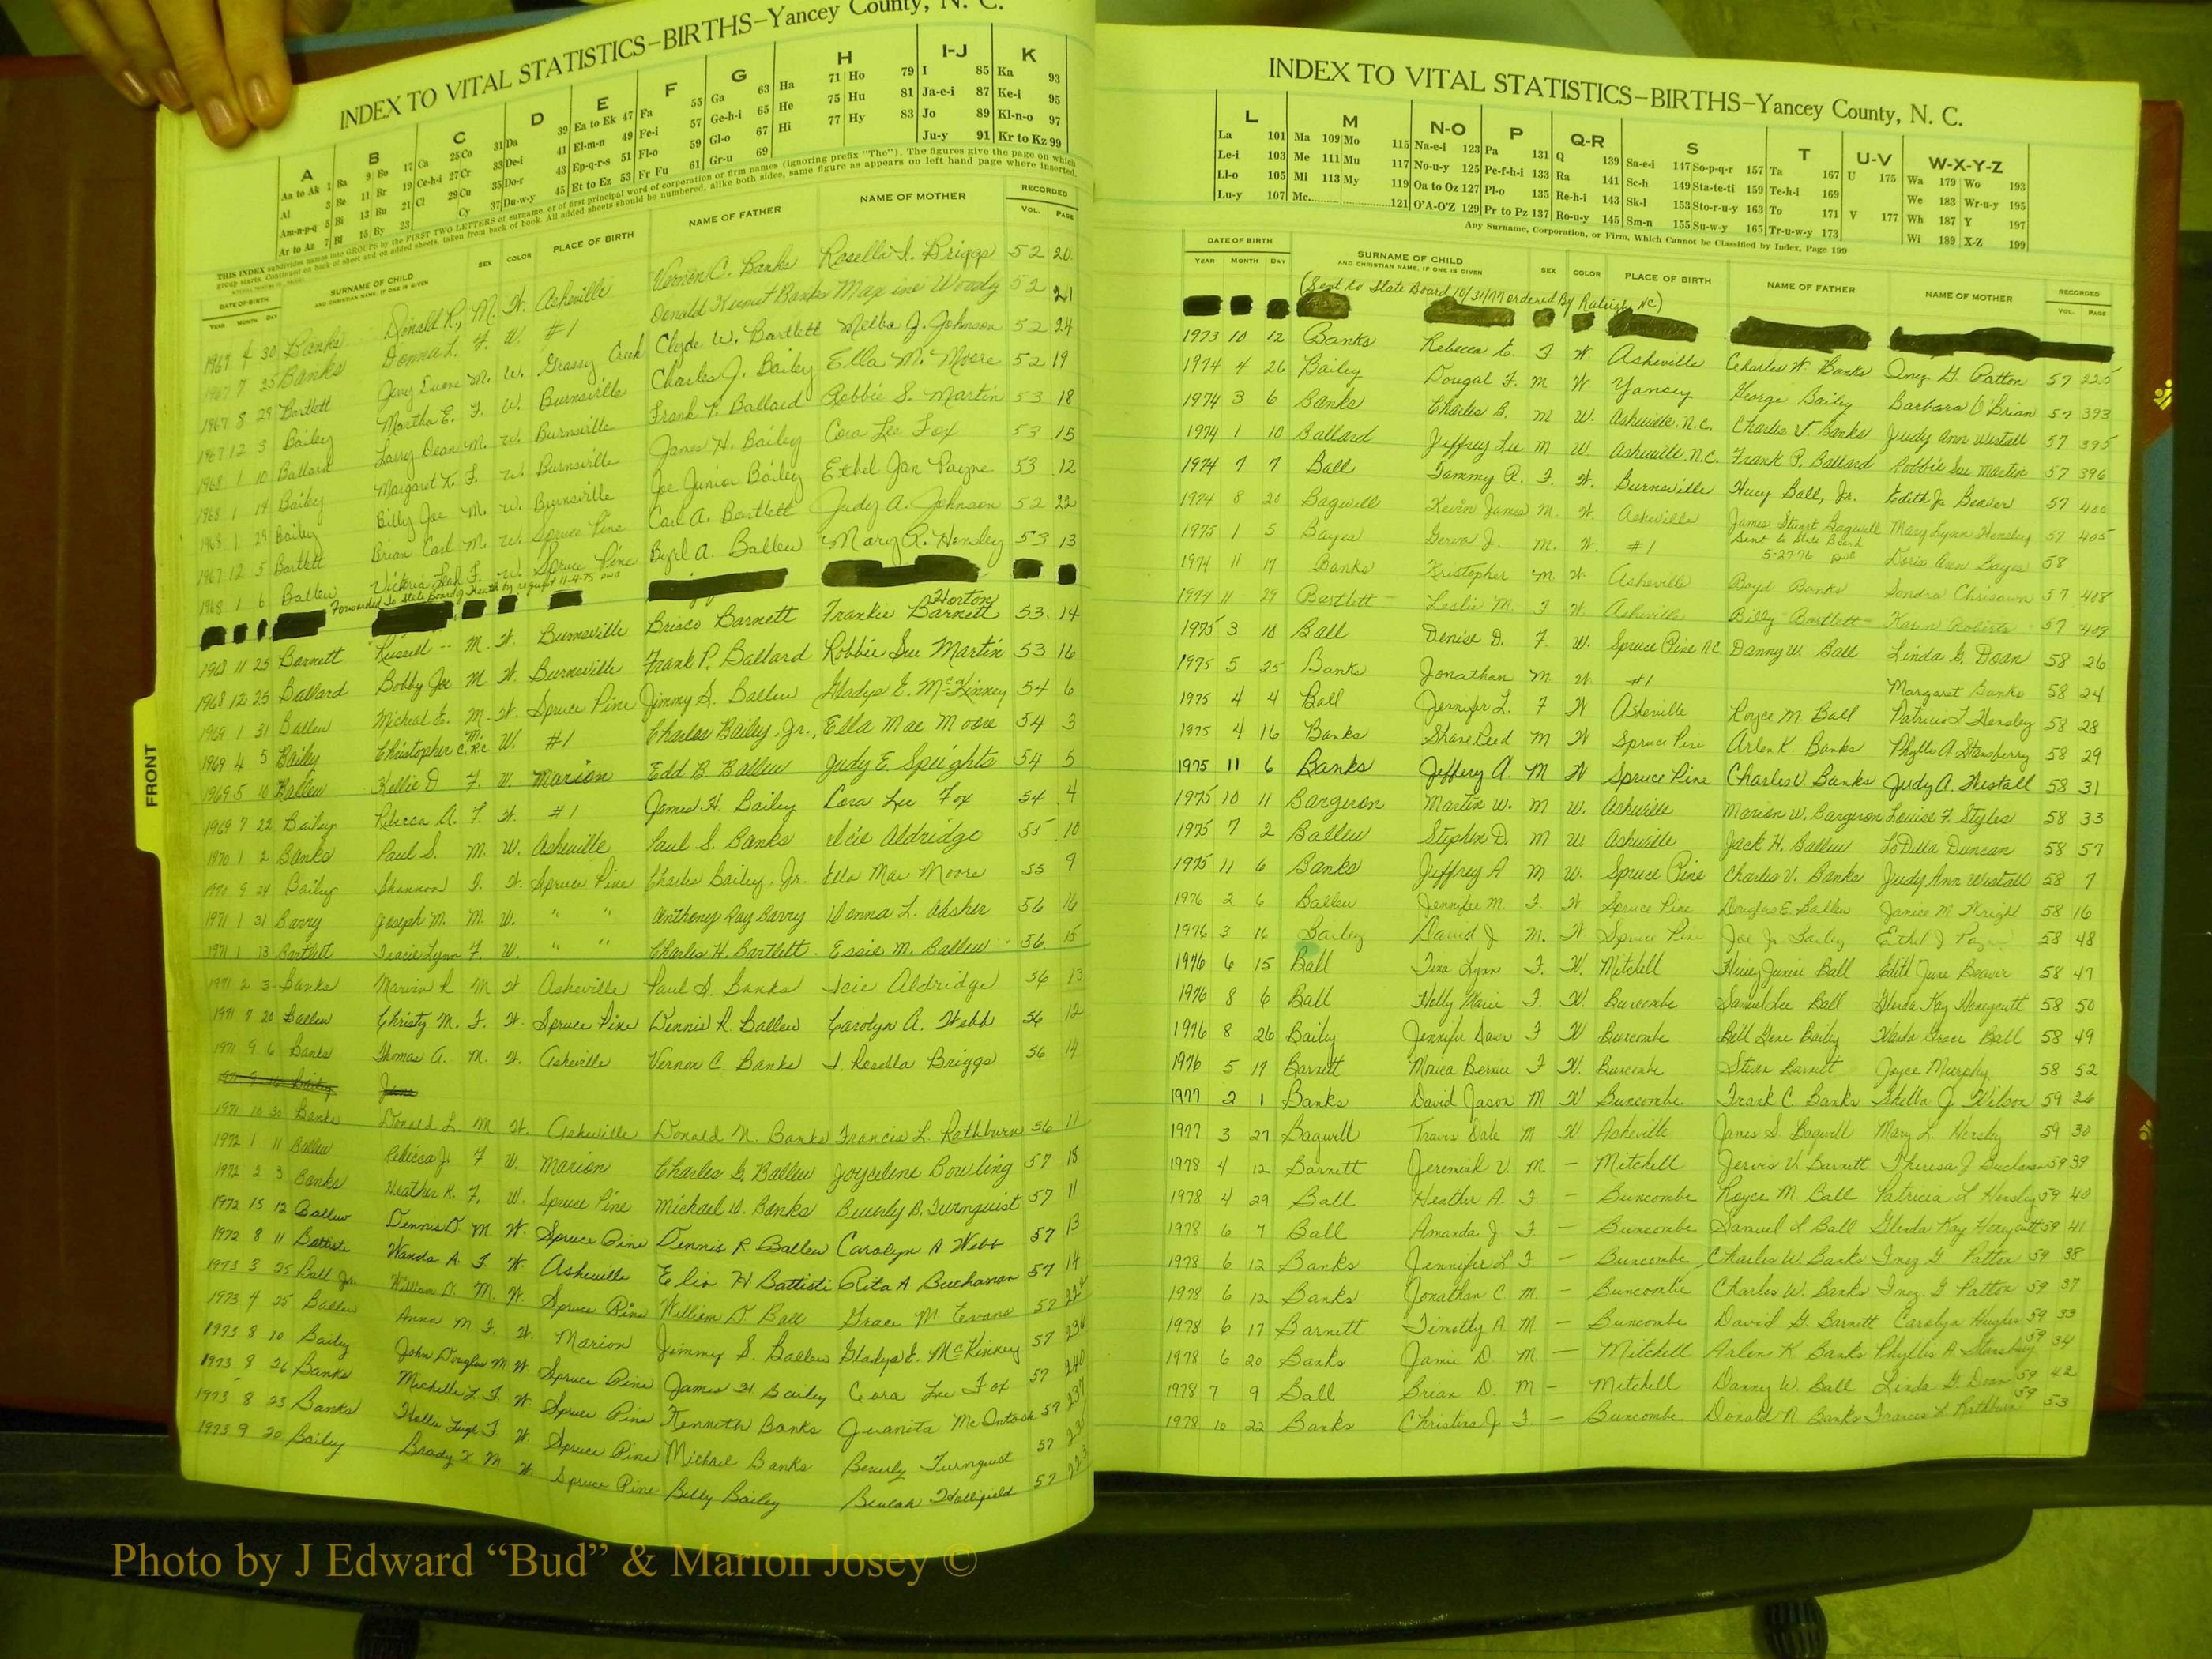 INDEX TO VITAL STATISTICS—BIRTHS—Yancey County, N. C.
A B C D E F G H I-J K
Aa to Ak 1 Ba 9 Bo 17 Ca 25 Co 31 Da 39 Ea to Ek 47 Fa 55 Ga 63 Ha 71 Ho 79 I 85 Ka 93
Al 3 Be 11 Br 19 Ce-h-i 27 Cr 33 De-i 41 El-m-n 49 Fe-i 57 Ge-h-i 65 He 75 Hu 81 Ja-e-i 87 Ke-i 95
Am-n-p-q 5 Bi 13 Bu 21 Cl 29 Cu 35 Do-r 43 Ep-q-r-s 51 Fl-o 59 Gl-o 67 Hi 77 Hy 83 Jo 89 Kl-n-o 97
Ar to Az 7 Bl 15 By 23 Cy 37 Du-w-y 45 Et to Ez 53 Fr Fu 61 Gr-u 69 Ju-y 91 Kr to Kz 99
THIS INDEX subdivides names into GROUPS by the FIRST TWO LETTERS of surname, or of first principal word of corporation or firm names (ignoring prefix "The"). The figures give the page on which
group starts. Continued on back of sheet and on added sheets, taken from back of book. All added sheets should be numbered, alike both sides, same figure as appears on left hand page where inserted.
DATE OF BIRTH SURNAME OF CHILD SEX COLOR PLACE OF BIRTH NAME OF FATHER NAME OF MOTHER RECORDED
YEAR MONTH DAY AND CHRISTIAN NAME, IF ONE IS GIVEN VOL. PAGE
1967 4 30 Banks Donald R, M. W. Asheville Vernon C. Banks Rosella I. Briggs 52 20
1967 7 25 Banks Donna L. F. W. #1 Donald Kermit Banks Maxine Woody 52 21
1967 8 29 Bartlett Jerry Duane M. W. Grassy Creek Clyde W. Bartlett Melba J. Johnson 52 24
1967 12 3 Bailey Martha E. F. W. Burnsville Charles J. Bailey Ella M. Moore 52 19
1968 1 10 Ballard Larry Dean M. W. Burnsville Frank P. Ballard Robbie S. Martin 53 18
1968 1 14 Bailey Margaret K. F. W. Burnsville James H. Bailey Cora Lee Fox 53 15
1968 1 29 Bailey Billy Joe M. W. Burnsville Joe Junior Bailey Ethel Jan Payne 53 12
1967 12 5 Bartlett Brian Carl M. W. Spruce Pine Carl A. Bartlett Judy A. Johnson 52 22
1968 1 6 Ballew Victoria Leah F. W. Spruce Pine Byrl A. Ballew Mary R. Hensley 53 13
Forwarded to State Board of Health by request 11-4-75
1968 11 25 Barnett Russell -- M. W. Burnsville Brisco Barnett Frankie Barnett Horton 53 14
1968 12 25 Ballard Bobby Joe M W. Burnsville Frank P. Ballard Robbie Sue Martin 53 16
1969 1 31 Ballew Micheal E. M. W. Spruce Pine Jimmy S. Ballew Gladys E. McKinney 54 6
1969 4 5 Bailey Christopher C. M. W. #1 Charles Bailey, Jr., Ella Mae Moore 54 3
1969 5 10 Ballew Kellie D F. W. Marion Edd B Ballew Judy E. Speights 54 5
1969 7 22 Bailey Rebecca A. F. W. #1 James H. Bailey Cora Lee Fox 54 4
1970 1 2 Banks Paul S. M. W. Asheville Paul S. Banks Icie Aldridge 55 10
1970 9 24 Bailey Shannon F. W. Spruce Pine Charles Bailey, Jr. Ella Mae Moore 55 9
1971 1 31 Barry Joseph M. M. W. " " Anthony Ray Barry Donna L. Absher 56 16
1971 1 13 Bartlett Tracie Lynn F. W. " " Charles H. Bartlett Essie M. Ballew 56 15
1971 2 3 Banks Marvin R M W Asheville Paul S. Banks Icie Aldridge 56 13
1971 7 20 Ballew Christy M. F. W. Spruce Pine Dennis R. Ballew Carolyn A. Webb 56 12
1971 9 6 Banks Thomas A. M. W. Asheville Vernon C. Banks I. Rosella Briggs 56 14
1971 10 30 Banks Donald L. M W. Asheville Donald N. Banks Francis L. Rathburn 56 11
1972 1 11 Ballew Rebecca J. F W. Marion Charles G. Ballew Joycelene Bowling 57 18
1972 2 3 Banks Heather K. F. W. Spruce Pine Michael W. Banks Beverly B. Turnquist 57 11
1972 15 12 Ballew Dennis D. M W. Spruce Pine Dennis R Ballew Carolyn A Webb 57 13
1972 8 11 Battisti Wanda A. F. W Asheville Elio H Battisti Rita A Buchanan 57 14
1973 3 25 Ball Jr. William D. M. W. Spruce Pine William D Ball Grace M. Evans 57
1973 4 25 Ballew Anna M F. W. Marion Jimmy S. Ballew Gladys E. McKinney 57
1973 8 10 Bailey John Douglas M W. Spruce Pine James H Bailey Cora Lee Fox 57 240
1973 8 26 Banks Michelle L F. W. Spruce Pine Kenneth Banks Juanita McIntosh 57 237
1973 8 23 Banks Hollie Leigh F W. Spruce Pine Michael Banks Beverly Turnquist 57
1973 9 20 Bailey Brady K M W. Spruce Pine Billy Bailey Beulah Hollifield 57 223
FRONT
INDEX TO VITAL STATISTICS—BIRTHS—Yancey County, N. C.
L M N-O P Q-R S T U-V W-X-Y-Z
La 101 Ma 109 Mo 115 Na-e-i 123 Pa 131 Q 139 Sa-e-i 147 So-p-q-r 157 Ta 167 U 175 Wa 179 Wo 193
Le-i 103 Me 111 Mu 117 No-u-y 125 Pe-f-h-i 133 Ra 141 Sc-h 149 Sta-te-ti 159 Te-h-i 169 We 183 Wr-u-y 195
Ll-o 105 Mi 113 My 119 Oa to Oz 127 Pl-o 135 Re-h-i 143 Sk-l 153 Sto-r-u-y 163 To 171 V 177 Wh 187 Y 197
Lu-y 107 Mc 121 O'A-O'Z 129 Pr to Pz 137 Ro-u-y 145 Sm-n 155 Su-w-y 165 Tr-u-w-y 173 Wi 189 X-Z 199
Any Surname, Corporation, or Firm, Which Cannot be Classified by Index, Page 199
DATE OF BIRTH SURNAME OF CHILD SEX COLOR PLACE OF BIRTH NAME OF FATHER NAME OF MOTHER RECORDED
YEAR MONTH DAY AND CHRISTIAN NAME, IF ONE IS GIVEN VOL. PAGE
(Sent to State Board 10/31/77 ordered By Raleigh, NC)
1973 10 12 Banks Rebecca E. F W. Asheville Charles W. Banks Inez G. Patton 57 225
1974 4 26 Bailey Dougal F. M W Yancey George Bailey Barbara O'Brian 57 393
1974 3 6 Banks Charles B. M W. Asheville, N.C. Charles V. Banks Judy Ann Westall 57 395
1974 1 10 Ballard Jeffrey Lee M W Asheville N.C. Frank P. Ballard Robbie Sue Martin 57 396
1974 7 7 Ball Tammy R. F. W. Burnsville Huey Ball, Jr. Edith J. Beaver 57 400
1974 8 20 Bagwell Kevin James M. W. Asheville James Stuart Bagwell Mary Lynn Hensley 57 405
1975 1 5 Bayes J. M. W. #1 Sent to State Board 5-27-76 Doris Ann Bayes 58
1974 11 17 Banks Kristopher M W. Asheville Boyd Banks Sondra Chrisawn 57 408
1974 11 29 Bartlett Leslie M. F W. Asheville Billy Bartlett Karen Roberts 57 409
1975 3 10 Ball Denise D. F. W. Spruce Pine N.C. Danny W. Ball Linda G. Doan 58 26
1975 5 25 Banks Jonathan M W. #1 Margaret Banks 58 24
1975 4 4 Ball Jennifer L. F W Asheville Royce M. Ball Patricia L Hensley 58 28
1975 4 16 Banks Shane Reed M W Spruce Pine Arlen K. Banks Phyllis A Stansberry 58 29
1975 11 6 Banks Jeffery A. M W Spruce Pine Charles V Banks Judy A. Westall 58 31
1975 10 11 Bargeron Martin W. M W. Asheville Marion W. Bargeron Louise F. Styles 58 33
1975 7 2 Ballew Stephen D. M W Asheville Jack H. Ballew LoDilla Duncan 58 57
1975 11 6 Banks Jeffrey A M W. Spruce Pine Charles V. Banks Judy Ann Westall 58 7
1976 2 6 Ballew Jennifer M. F. W Spruce Pine Douglas E. Ballew Janice M Wright 58 16
1976 3 16 Bailey David J M. W. Spruce Pine Joe Jr. Bailey Ethel J 58 48
1976 6 15 Ball Tina Lynn F. W. Mitchell Huey Junior Ball Edith June Beaver 58 47
1976 8 6 Ball Holly Marie F. W. Buncombe Samuel Lee Ball Glenda Kay Honeycutt 58 50
1976 8 26 Bailey Jennifer Dawn F W Buncombe Bill Gene Bailey Wanda Grace Ball 58 49
1976 5 17 Barnett Monica Bernice F W. Buncombe Steven Barnett Joyce Murphy 58 52
1977 2 1 Banks David Jason M W Buncombe Frank C. Banks Shelba J. Wilson 59 26
1977 3 27 Bagwell Travis Dale M W. Asheville James S. Bagwell Mary L. Hensley 59 30
1978 4 12 Barnett Jeremiah V. M — Mitchell Jervis V. Barnett Theresa J Buchanan 59 39
1978 4 29 Ball Heather A. F. — Buncombe Royce M. Ball Patricia L Hensley 59 40
1978 6 7 Ball Amanda J F — Buncombe Samuel L Ball Glenda Kay Honeycutt 59 41
1978 6 12 Banks Jennifer L F. — Buncombe Charles W. Banks Inez G Patton 59 38
1978 6 12 Banks Jonathan C M. — Buncombe Charles W. Banks Inez G Patton 59 37
1978 6 17 Barnett Timothy A. M. — Buncombe David G. Barnett Carolyn Hughes 59 33
1978 6 20 Banks Jamie D. M — Mitchell Arlen K Banks Phyllis A Stansberry 59 34
1978 7 9 Ball Brian D. M — Mitchell Danny W. Ball Linda G. Doan 59 42
1978 10 22 Banks Christina J. F — Buncombe Donald N. Banks Frances L Rathburn 59 53
Photo by J Edward “Bud” & Marion Josey ©